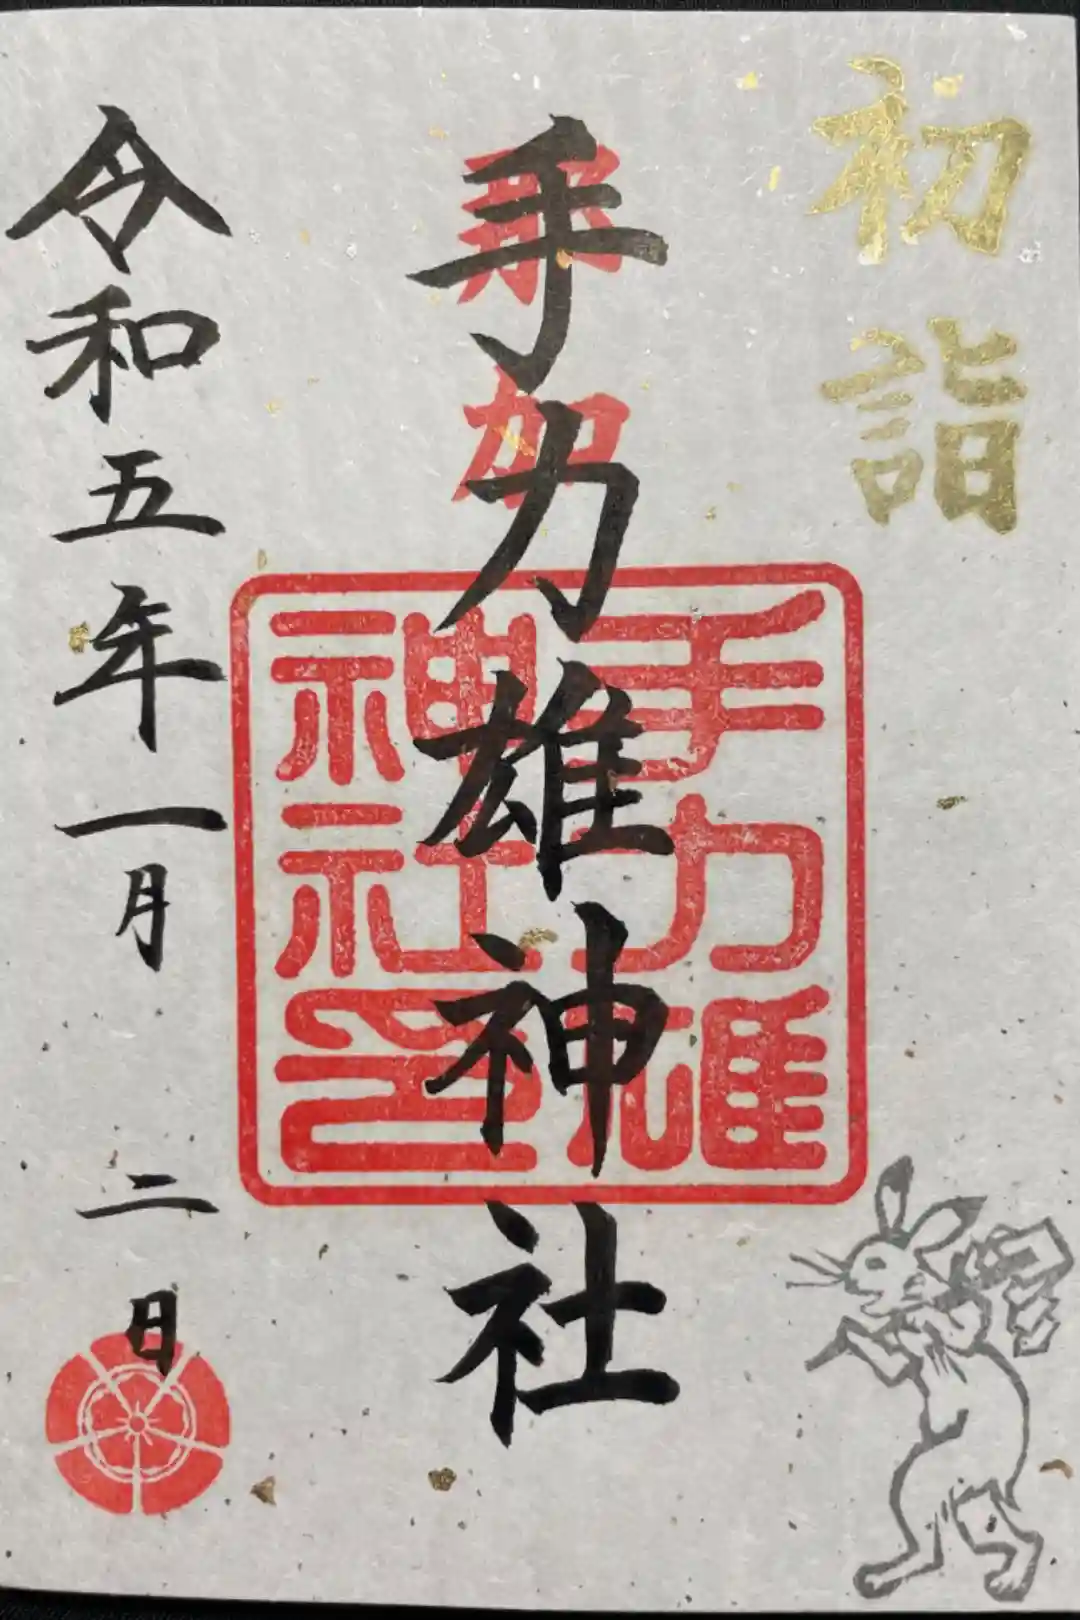 初詣
手力雄神社
那加
手力雄
神社印
令和五年一月二日